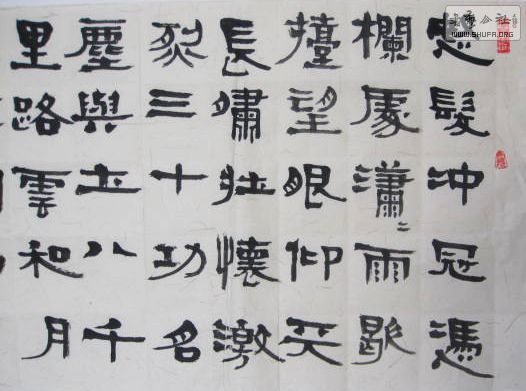 怒髮冲冠憑
欄處瀟〻雨歇
擡望眼仰天
長嘯壯懷激
烈三十功名
塵與土八千
里路雲和月
WWW.SHUFA.ORG